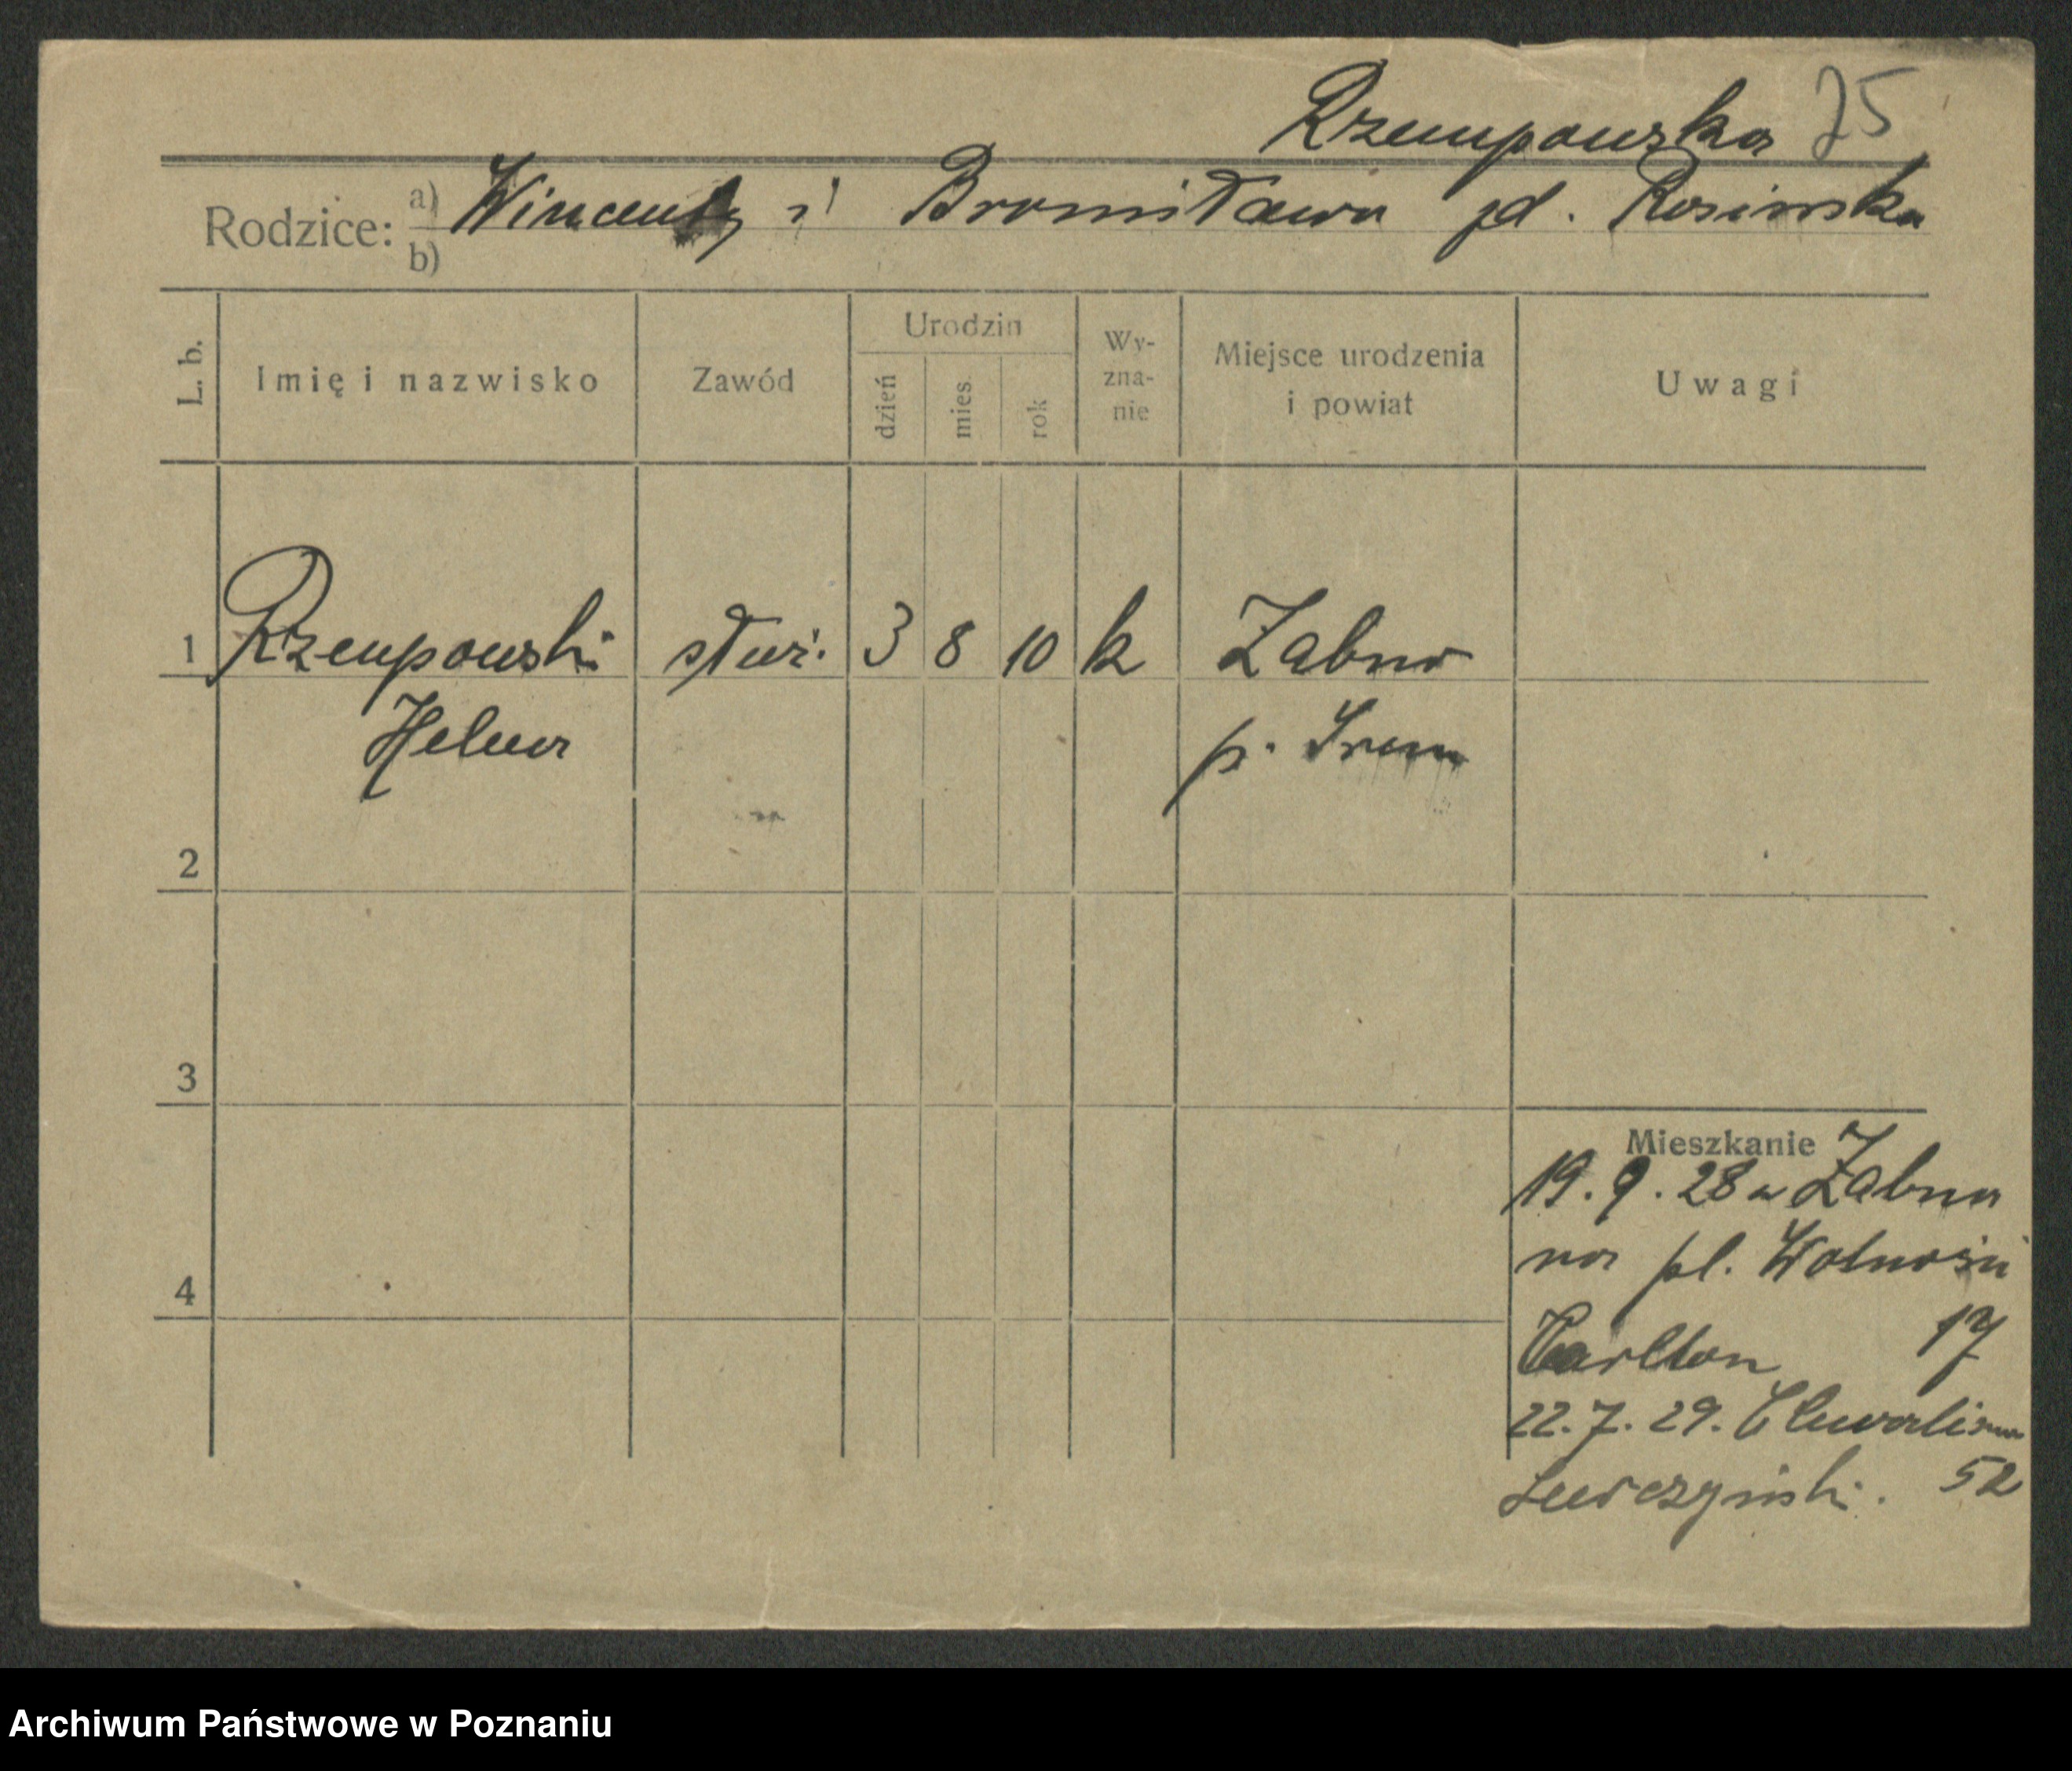 Rzempowska 75
Rodzice: a) Wincenty i Bronisława zd. Rosinska
b)
L. b.
Imię i nazwisko
Zawód
Urodzin
dzień
mies.
rok
Wy-
zna-
nie
Miejsce urodzenia
i powiat
Uwagi
1 Rzempowski służ. 3 8 10 k Zabno
Helena p. Srem
2
3
4
Mieszkanie
19.9.28 z Zabna
na pl. Wolności
Carlton 17
22.7.29.
52
Archiwum Państwowe w Poznaniu